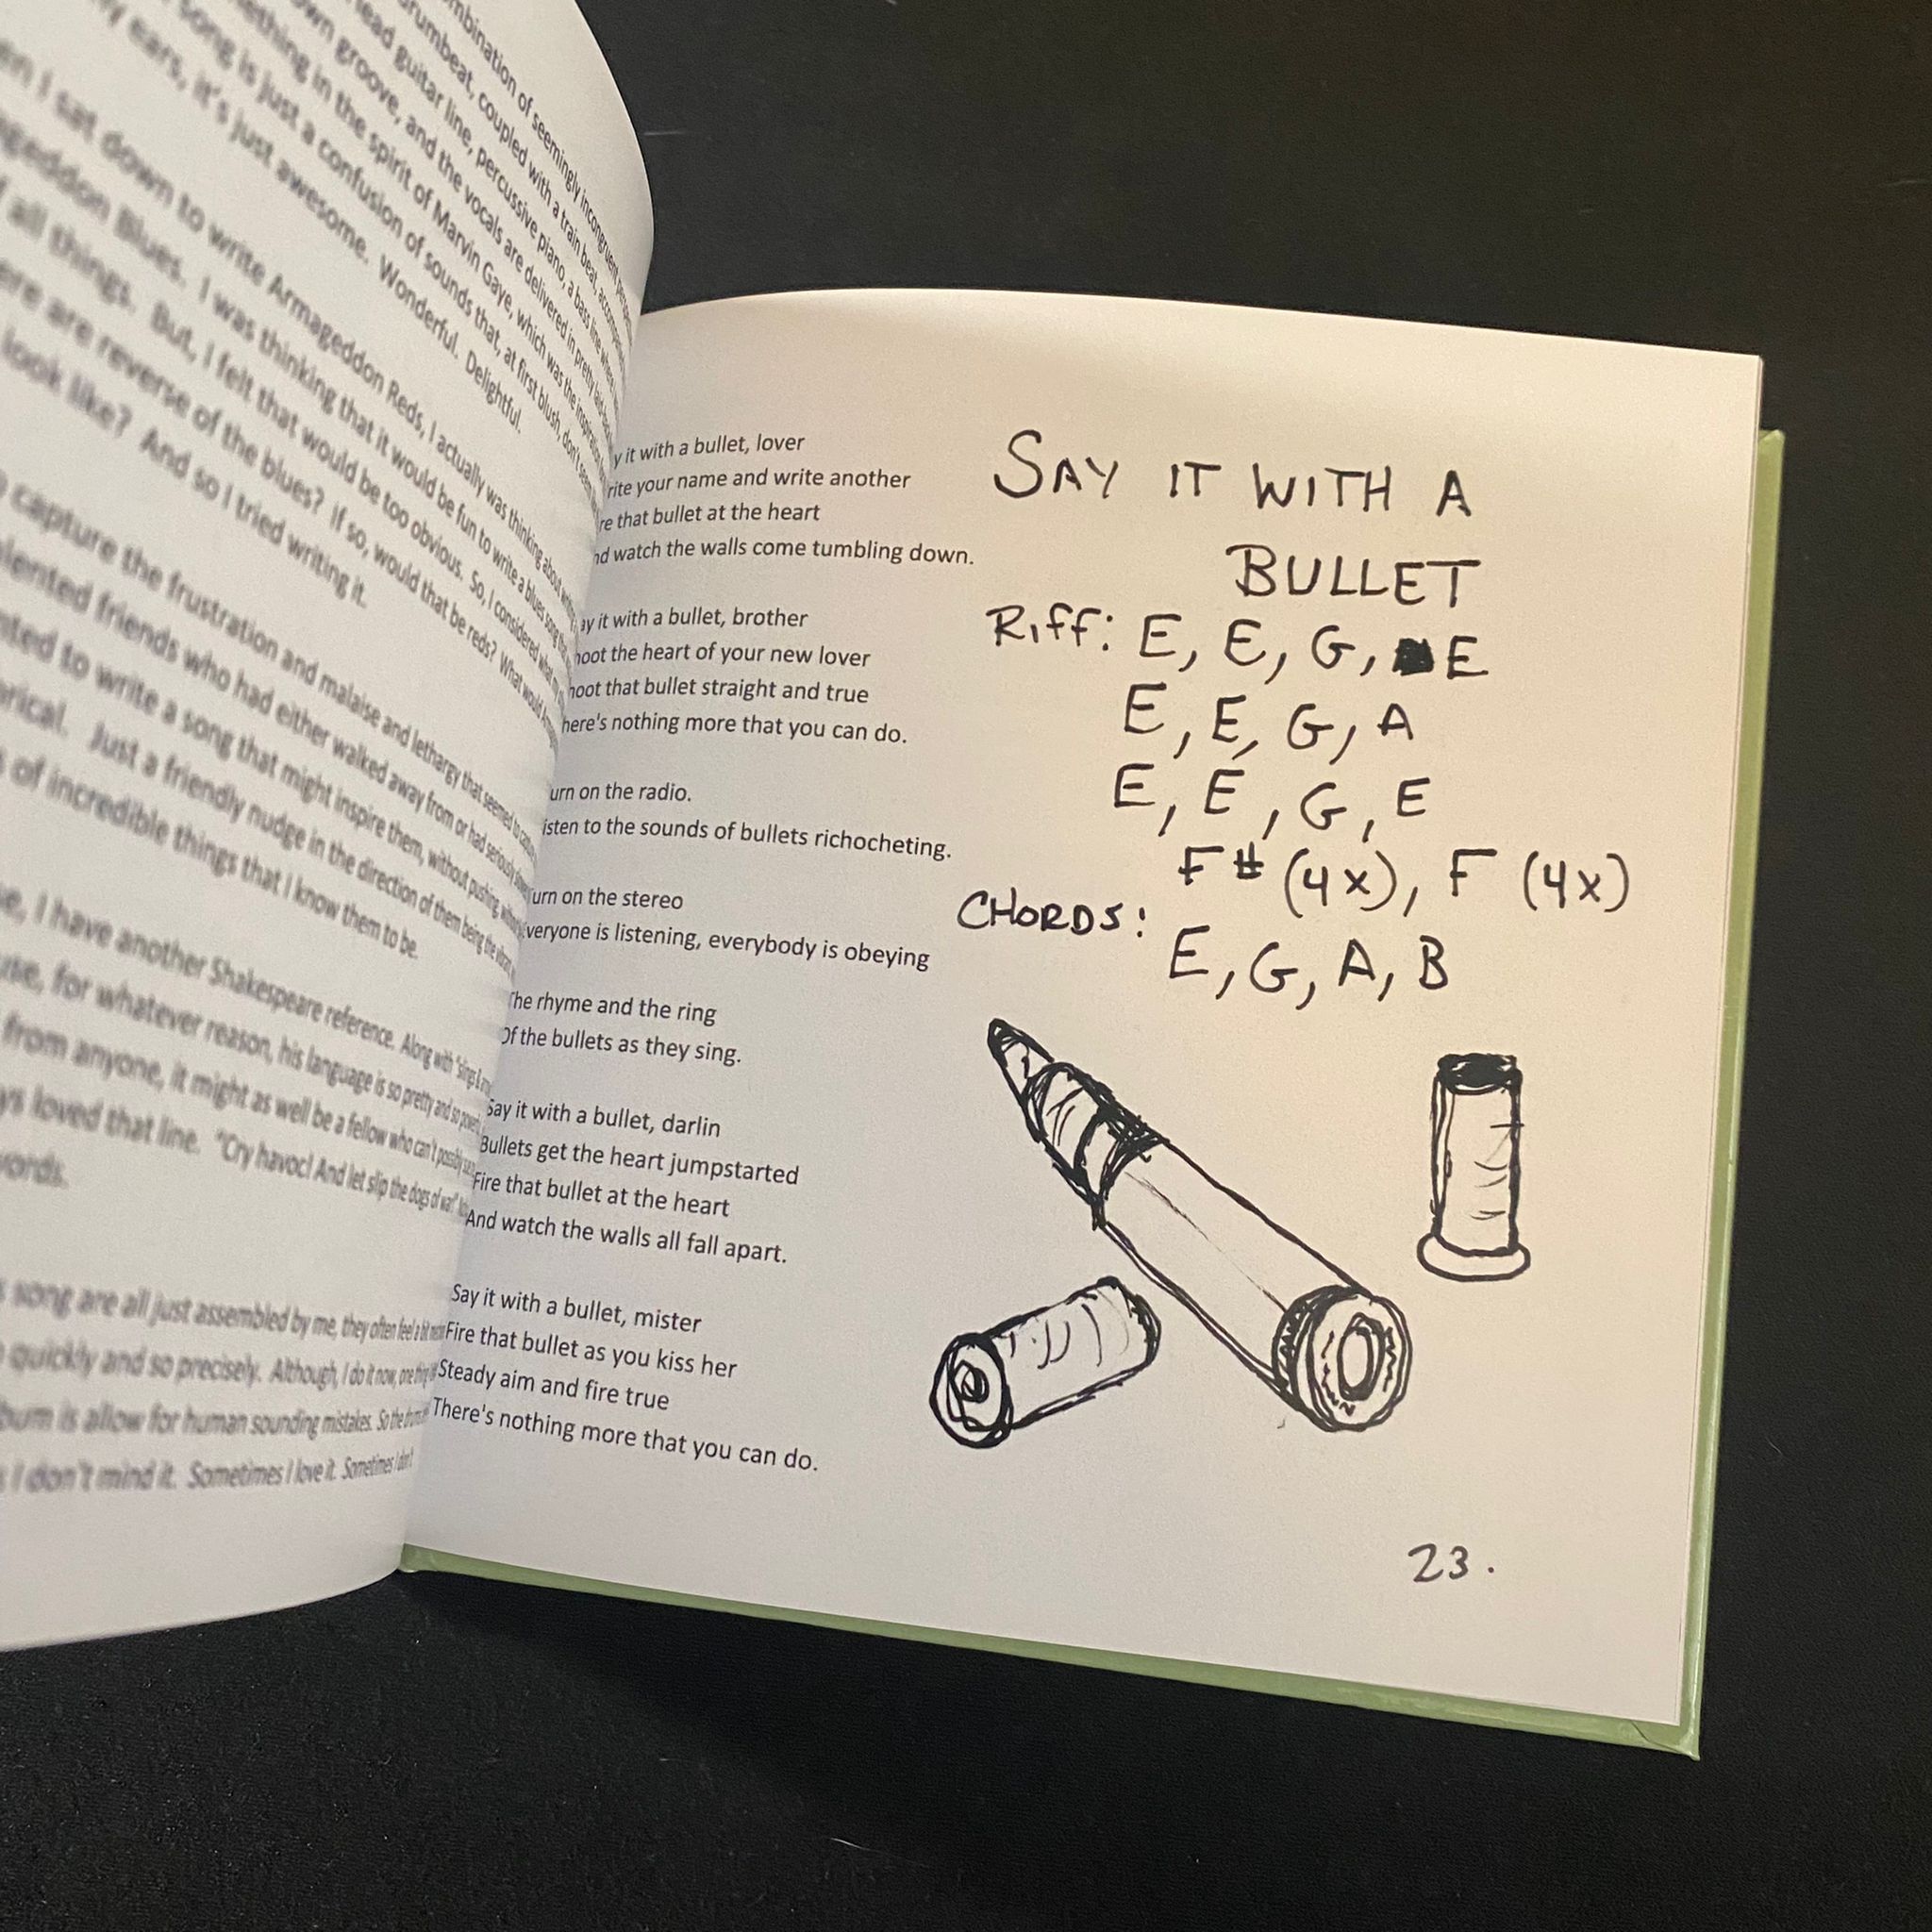 mbination of seemingly incongruent
rumbeat, coupled with a train beat,
lead guitar line, percussive piano, a bass line
own groove, and the vocals are delivered in pretty
mething in the spirit of Marvin Gaye, which was the inspiration
song is just a confusion of sounds that, at first blush, don't seem
y ears, it's just awesome. Wonderful. Delightful.
en I sat down to write Armageddon Reds, I actually was thinking about
ageddon Blues. I was thinking that it would be fun to write a blues song
f all things. But, I felt that would be too obvious. So, I considered what
ere are reverse of the blues? If so, would that be reds? What would
look like? And so I tried writing it.
o capture the frustration and malaise and lethargy that seemed to
alented friends who had either walked away from or had seriously
nted to write a song that might inspire them, without pushing
orical. Just a friendly nudge in the direction of them being the
s of incredible things that I know them to be.
e, I have another Shakespeare reference. Along with
use, for whatever reason, his language is so pretty and so
from anyone, it might as well be a fellow who can't possibly
ys loved that line. "Cry havoc! And let slip the dogs of war"
words.
s song are all just assembled by me, they often feel a bit
o quickly and so precisely. Although, I do it now, one thing
bum is allow for human sounding mistakes. So the
s I don't mind it. Sometimes I love it. Sometimes I don't
y it with a bullet, lover
rite your name and write another
re that bullet at the heart
nd watch the walls come tumbling down.
ay it with a bullet, brother
hoot the heart of your new lover
hoot that bullet straight and true
here's nothing more that you can do.
urn on the radio.
isten to the sounds of bullets richocheting.
urn on the stereo
veryone is listening, everybody is obeying
The rhyme and the ring
Of the bullets as they sing.
Say it with a bullet, darlin
Bullets get the heart jumpstarted
Fire that bullet at the heart
And watch the walls all fall apart.
Say it with a bullet, mister
Fire that bullet as you kiss her
Steady aim and fire true
There's nothing more that you can do.
SAY IT WITH A
BULLET
Riff: E, E, G, E
E, E, G, A
E, E, G, E
F# (4x), F (4x)
CHORDS:
E, G, A, B
23.